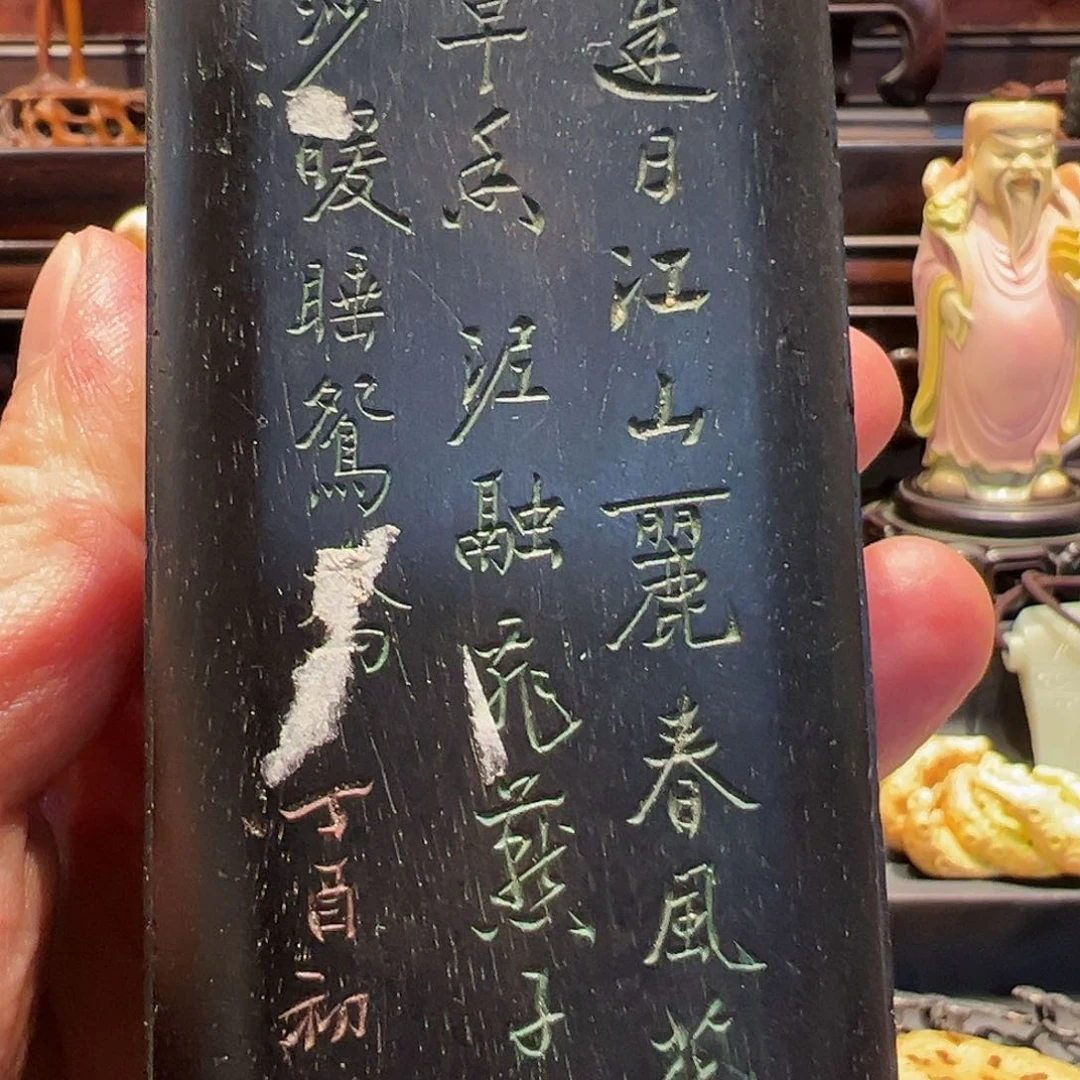 日江山麗春風花
草香泥融飛燕子
沙暖睡鴛鴦丁酉初